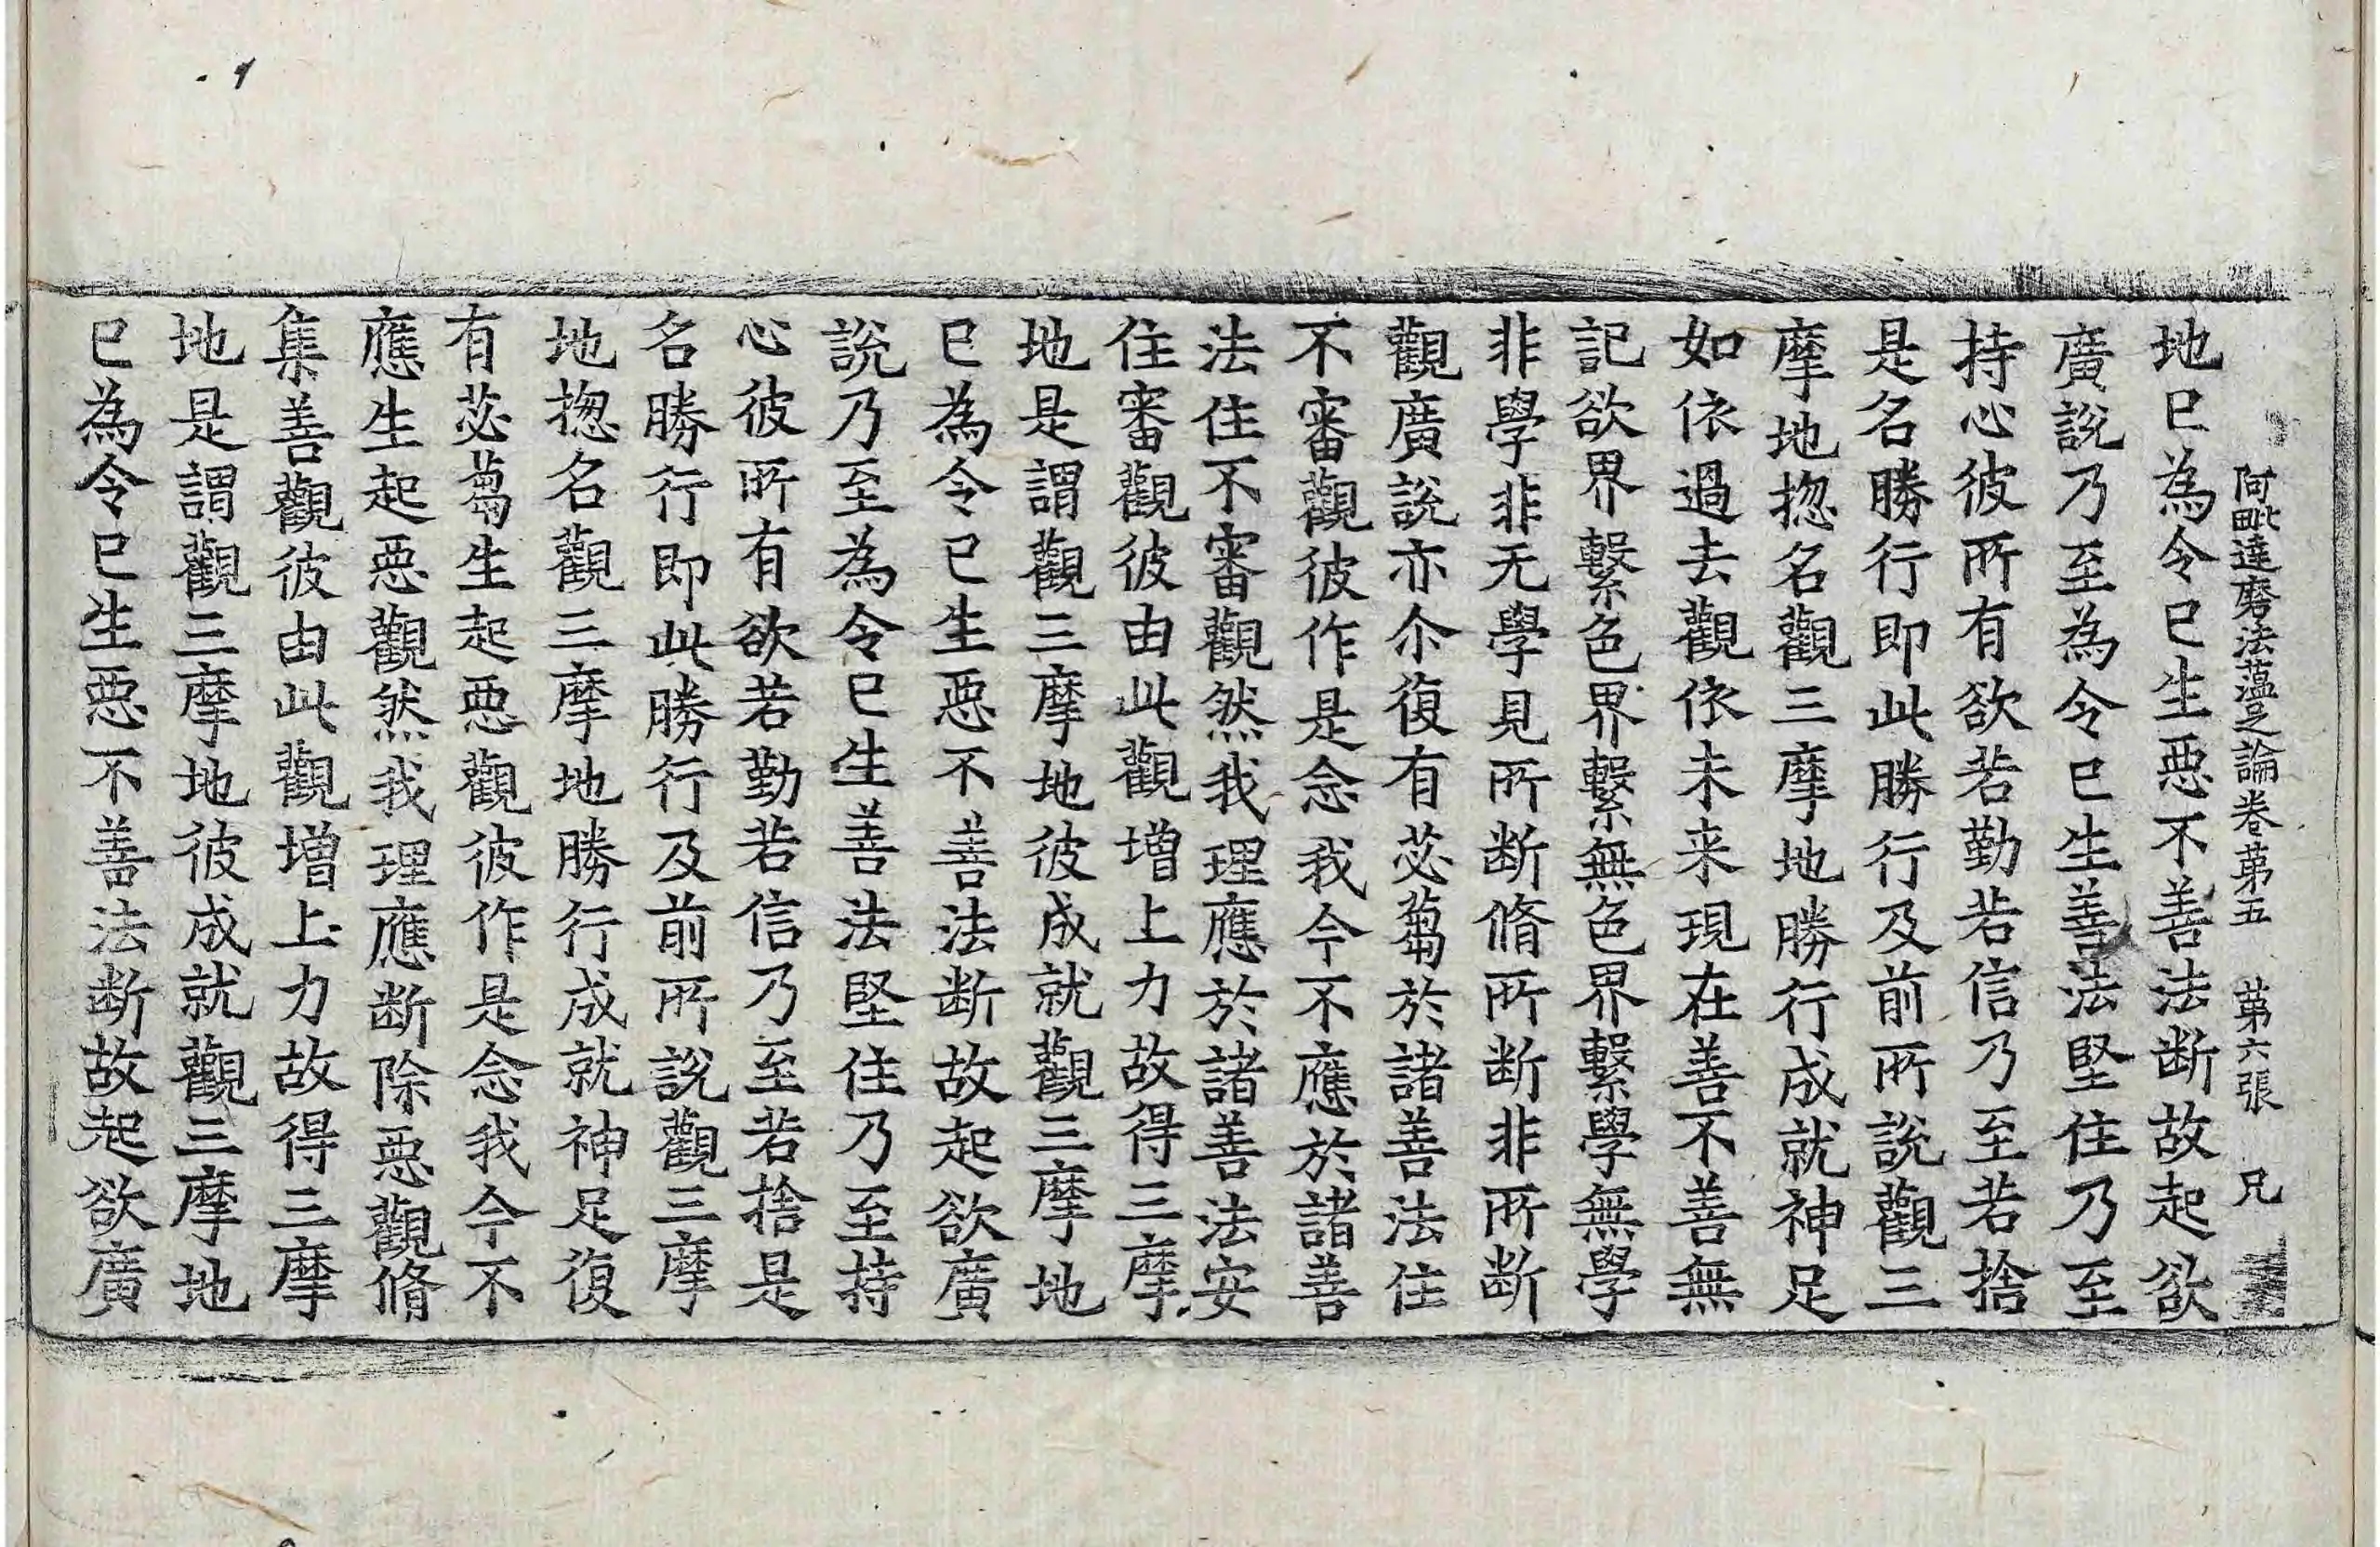 阿毗達磨法薀足論卷苐五 苐六張 兄
地已為令已生惡不善法斷故起欲
廣說乃至為令已生善法堅住乃至
持心彼所有欲若勤若信乃至若捨
是名勝行即此勝行及前所說觀三
摩地揔名觀三摩地勝行成就神足
如依過去觀依未来現在善不善無
記欲界繫色界繫無色界繫學無學
非學非无學見所断脩所断非所断
觀廣說亦尒復有苾蒭於諸善法住
不審觀彼作是念我今不應於諸善
法住不審觀然我理應於諸善法安
住審觀彼由此觀增上力故得三摩
地是謂觀三摩地彼成就觀三摩地
已為令已生惡不善法断故起欲廣
說乃至為令已生善法堅住乃至持
心彼所有欲若勤若信乃至若捨是
名勝行即此勝行及前所說觀三摩
地揔名觀三摩地勝行成就神足復
有苾蒭生起惡觀彼作是念我今不
應生起惡觀然我理應断除惡觀脩
集善觀彼由此觀增上力故得三摩
地是謂觀三摩地彼成就觀三摩地
已為令已生惡不善法断故起欲廣